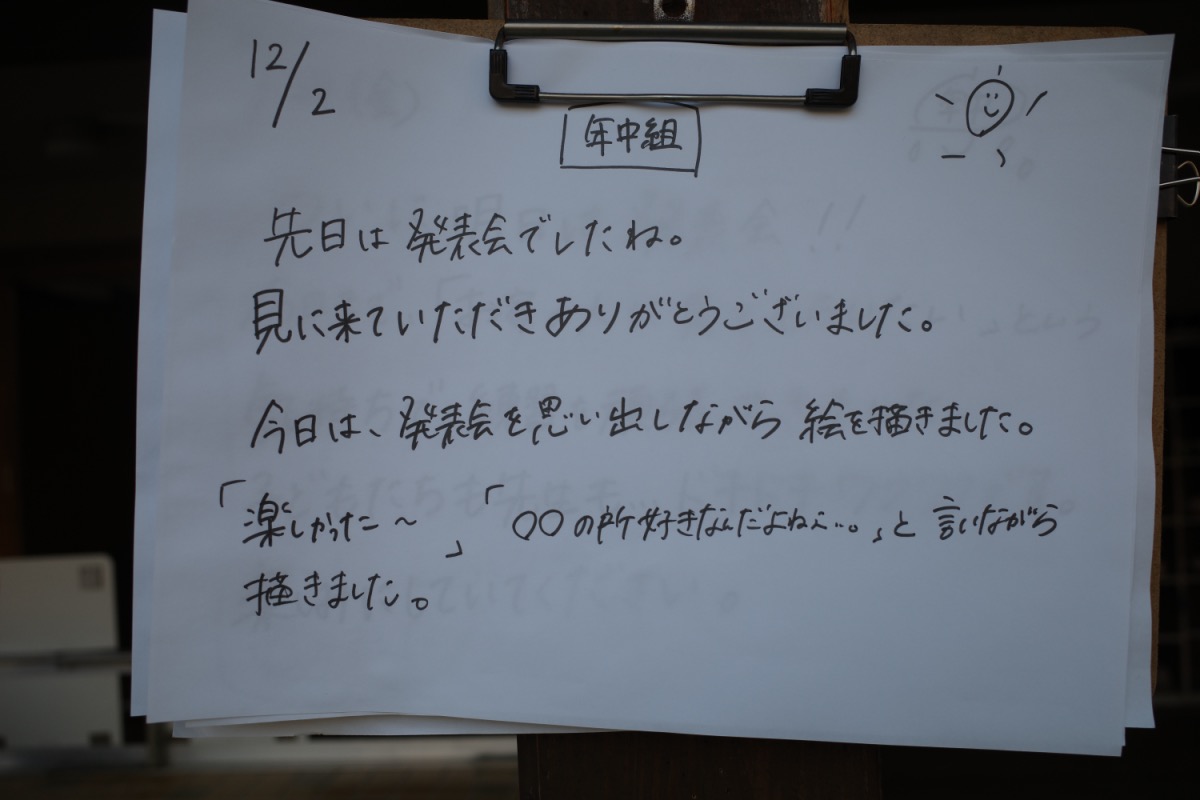 12/2
年中組
先日は発表会でしたね。
見に来ていただきありがとうございました。
今日は、発表会を思い出しながら 絵を描きました。
「楽しかった〜」「〇〇の所好きなんだよねぇ…。」と 言いながら
描きました。